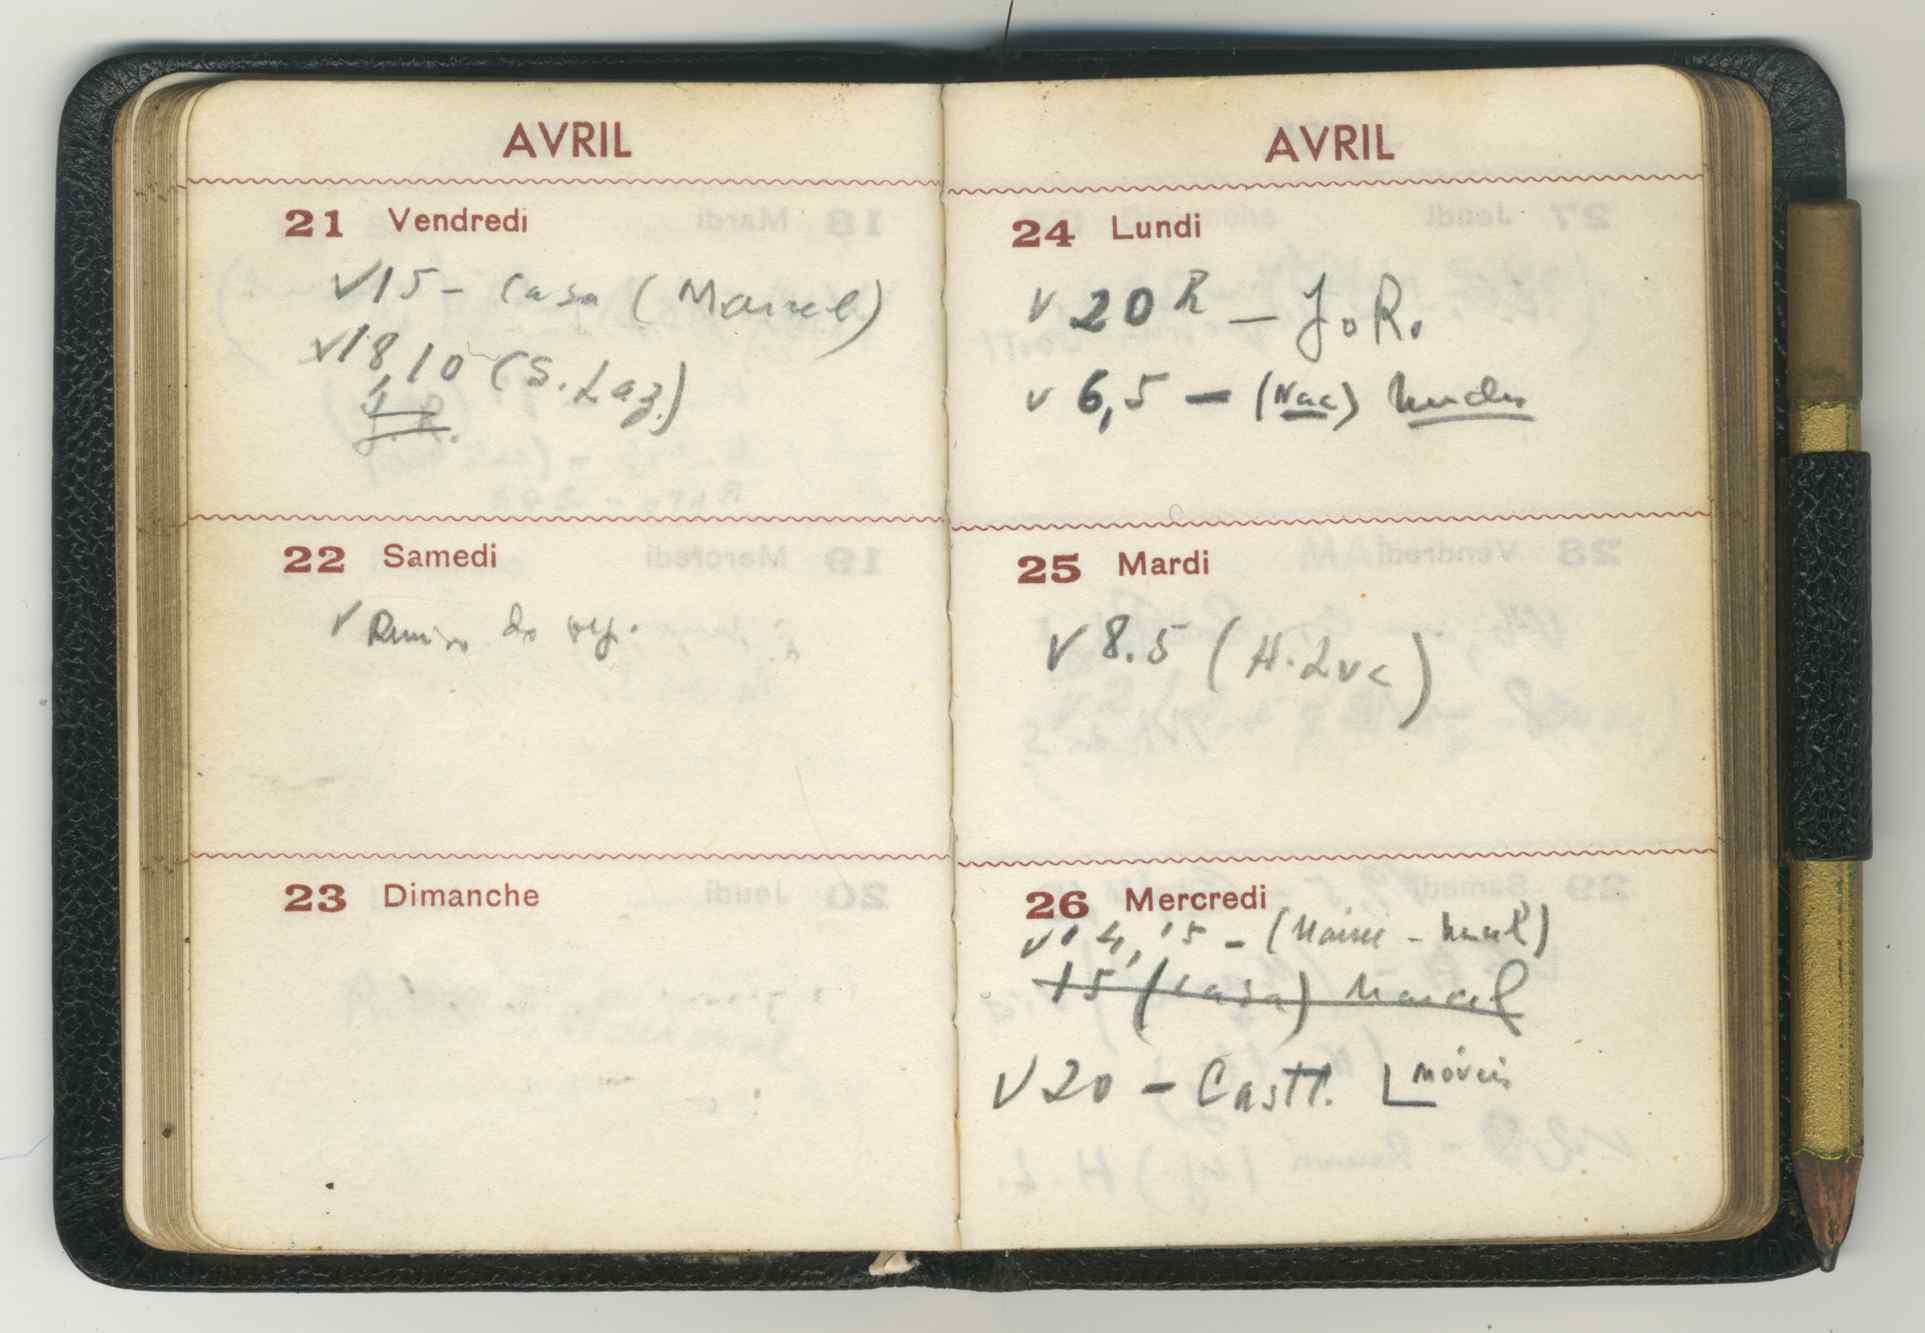 AVRIL
21 Vendredi
√15 - Casa (Marcel)
√18,10 (S. Laz.)
J. R.
22 Samedi
√
23 Dimanche
AVRIL
24 Lundi
√ 20 R — J. R.
√ 6,5 — (Nac)
25 Mardi
√ 8.5 (H. Luc)
26 Mercredi
√14,15 - (
15 (Casa) Marcel
√20 - Castt. L